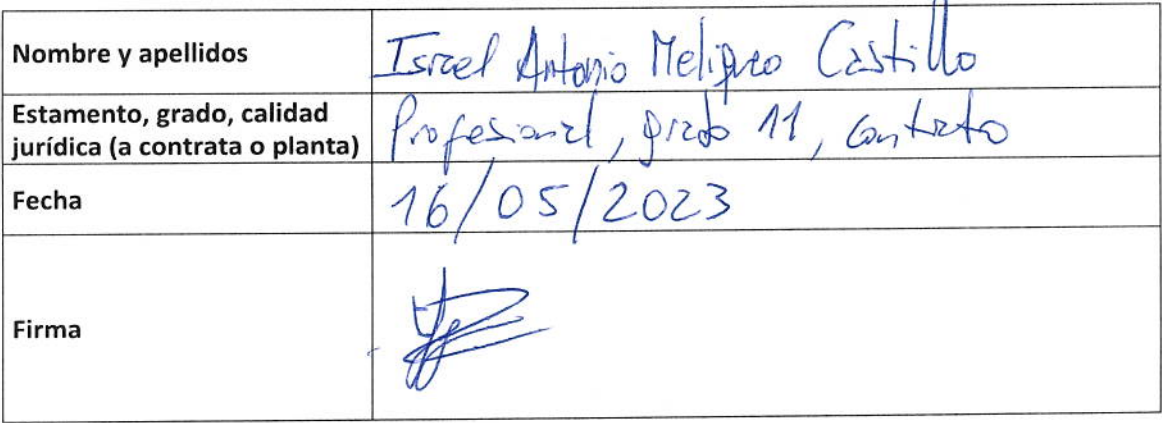 Nombre y apellidos
Israel Antonio Meliqueo Castillo
Estamento, grado, calidad
jurídica (a contrata o planta)
Profesional, grado 11, contrata
Fecha
16/05/2023
Firma